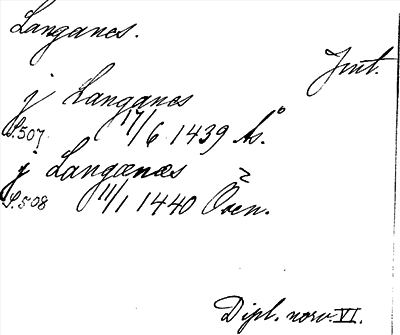 Langanes.
Jmt.
j Langanes
S. 507 17/6 1439 Ås.
j Langanæs
S. 508 11/1 1440 Oven.
Dipl. norv. VI.